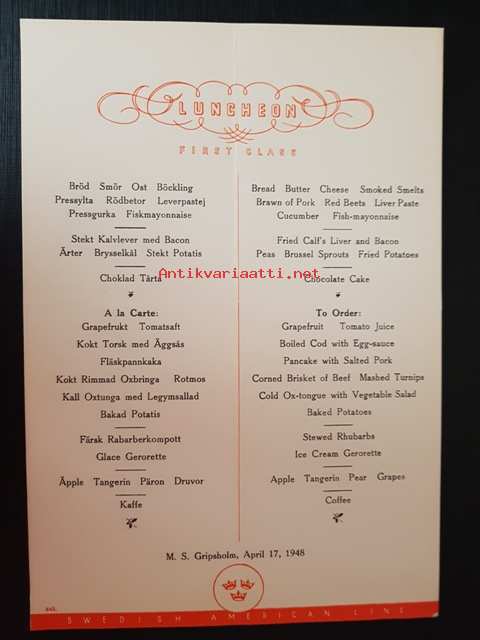 LUNCHEON
FIRST CLASS
Bröd Smör Ost Böckling
Pressylta Rödbetor Leverpastej
Pressgurka Fiskmayonnaise
Stekt Kalvlever med Bacon
Ärter Brysselkål Stekt Potatis
Choklad Tårta
A la Carte:
Grapefrukt Tomatsaft
Kokt Torsk med Äggsås
Fläskpannkaka
Kokt Rimmad Oxbringa Rotmos
Kall Oxtunga med Legymsallad
Bakad Potatis
Färsk Rabarberkompott
Glace Gerorette
Äpple Tangerin Päron Druvor
Kaffe
Bread Butter Cheese Smoked Smelts
Brawn of Pork Red Beets Liver Paste
Cucumber Fish-mayonnaise
Fried Calf's Liver and Bacon
Peas Brussel Sprouts Fried Potatoes
Chocolate Cake
To Order:
Grapefruit Tomato Juice
Boiled Cod with Egg-sauce
Pancake with Salted Pork
Corned Brisket of Beef Mashed Turnips
Cold Ox-tongue with Vegetable Salad
Baked Potatoes
Stewed Rhubarbs
Ice Cream Gerorette
Apple Tangerin Pear Grapes
Coffee
Antikvariaatti.net
M. S. Gripsholm, April 17, 1948
SWEDISH AMERICAN LINE